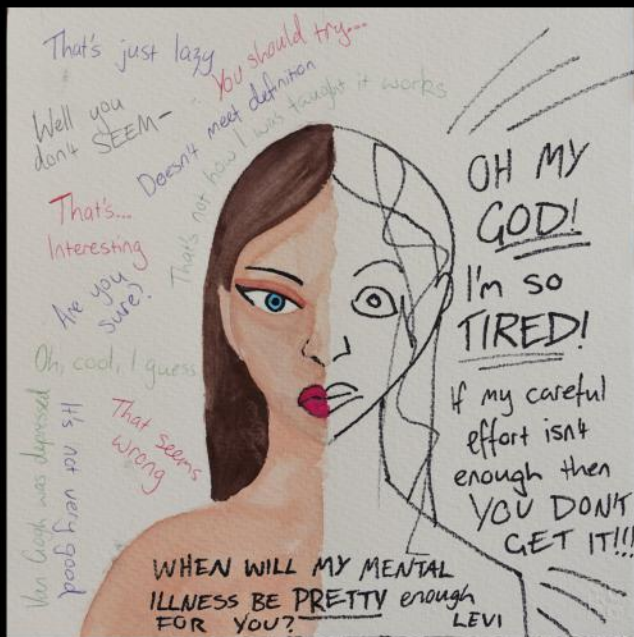 That's just lazy
You should try...
Well you
don't SEEM-
Doesn't meet definition
That's not how I was taught it works
That's...
Interesting
Are you
sure?
Oh, cool, I guess
Van Gogh was depressed
It's not very good
That seems
wrong
OH MY
GOD!
I'm so
TIRED!
If my careful
effort isn't
enough then
YOU DON'T
GET IT!!!
WHEN WILL MY MENTAL
ILLNESS BE PRETTY enough
FOR YOU?
LEVI